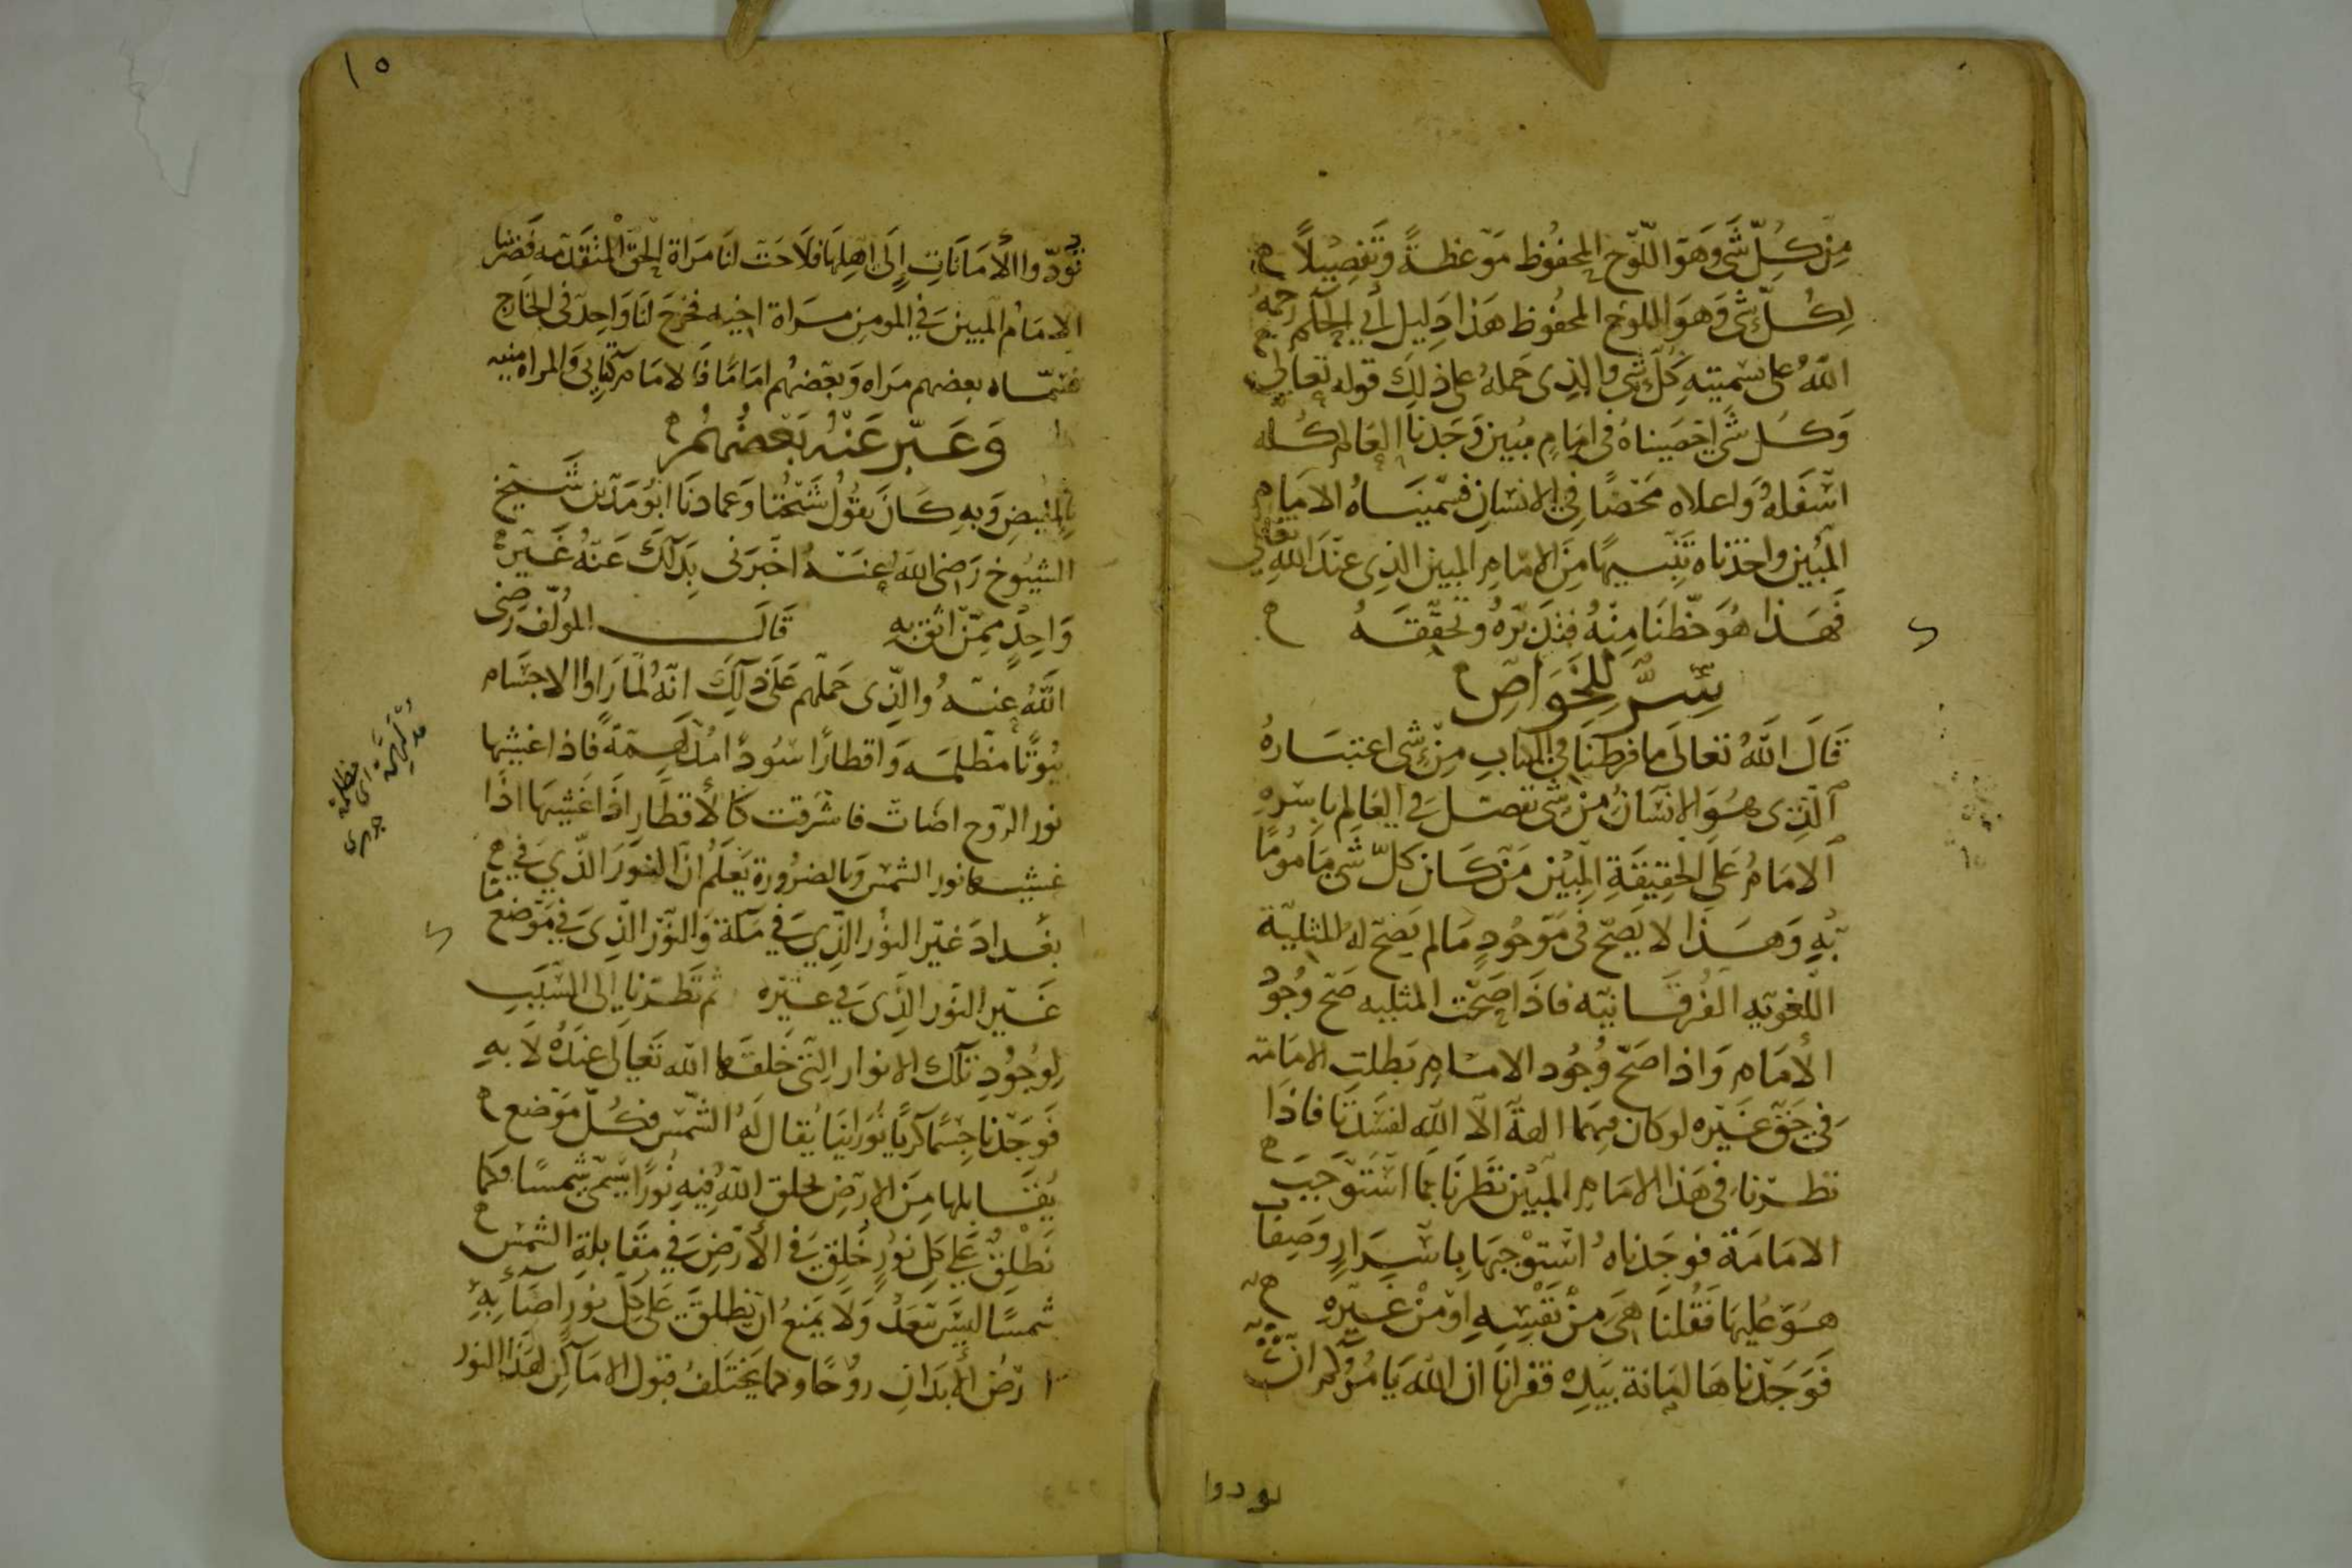 مِنْ كُلِّ شَى وَهوَ اللّوْح المحفُوظ مَوْعظةً وَتَفصِيلاً
لِكُلّ شَى وَهوَ اللوْح المحفُوظ هَذا دَلِيل أَبي الحكم رحمهُ
اللّهُ على تسميتهِ كُلّ شَى والذِى حَملهُ على ذلِكَ قوله تعَالى
وَكُل شَى احْصَيناهُ فى امَامٍ مُبين وَجَدنَا العَالم كُله
اسْفَلهُ وَاعلاه مُحْصًا فِي الانسَانِ فسَمّينَاهُ الامَام
المُبين واخذنَاه تَنبيهًا مِنَ الامَامِ المبين الذِى عنْدَ اللهِ تعَالى
فَهَذا هُوَ حَظّنَا مِنْهُ فتدَبّرهُ وَتحقّقهُ
سِرّ لِلخَوَاصّ
قَالَ اللّهُ تعَالَى مَا فرطنَا في الكتابِ مِنْ شَى اعتبَارهُ
الّذِى هُوَ الانسَانُ مِنْ شَى تفصّل في العَالم باسْرهِ
الامَامُ عَلَى الحقِيقَةِ المبيْن مَن كَان كلّ شَى مَامُومًا
بهِ وَهَذا لا يَصحّ فى مَوْجُودٍ مَا لم يَصحّ له المثلِيّة
اللّغويّه الفُرقَانيّه فاذَا صحّت المثليه صَح وُجُود
الأمَامِ وَاذا صَحّ وُجُود الامَامِ بَطلت الامَامة
في حَقّ غَيْره لو كان فِيهمَا الهةٌ الّا اللّه لفسَدتَا فاذَا
نظرْنا فى هَذا الامَامِ المبيْن نظَرنَا بمَا اسْتَوْجَبَ
الامَامَة فوجَدناهُ اسْتوْجبَهَا باسْرَارٍ وَصِفَات
هُوَ عليهَا فقُلنَا هىَ مِنْ نَفْسِهِ اوْ مِنْ غَيْرِهِ
فوَجَدْناهَا امَانة بيَدِه فقرانَا ان اللّهَ يَامُرُكُم انْ
تودوا
١٥
تُؤدّوا الأمَانَاتِ إِلَى اهْلِهَا فلَاحَت لنَا مَرَاة الحقّ المتقدّمه فصرنَا
الامَامُ المبيْن في المومِن مَرَاة اخِيه فخرَجَ لنَا وَاحِدٌ فى الخَارِج
فسَمّاه بعضهم مَراه وَبعْضهُم امَامًا فَالامَام كتابى وَالمراه سنيه
وَعَبّر عَنْهُ بَعْضُهُمْ
بِالمُفِيضِ وَبهِ كَانَ يقُولُ شَيْخُنَا وَعمادنَا ابُو مَدْين شَيْخ
الشيُوخ رَضى اللّهُ عنهُ اخْبَرَنى بِذَلِكَ عَنْهُ غَيْر
وَاحِدٍ مِمّنْ اثق بهِ قَالَ المؤلّف رضى
اللّهُ عنهُ والّذِى حَملَهم عَلَى ذَلِكَ انّهُ لمّا رَاوا الاجسَام
بيُوتًا مظلِمَه وَاقطارًا سُودًا مُدلَهمّةً فاذا غشِيهَا
نور الرّوح اضَات فاشرَقت كَالأقطَارِ اذا غَشِيهَا اذَا
غشيهَا نور الشمس وَبالضرُورة يَعلَمُ انّ النّورَ الذِي في
بغدَادَ غَيْر النُوْر الذِي في مَكّة وَالنّوْر الذِى في مَوْضع مَّا
غَيْر النّوْر الذِى في غيْره ثم نَظَرْنا إلى السّبَبِ
لِوُجُودِ تِلك الانوار التِى خَلقهَا اللّه تعَالَى عندَهُ لَا بهِ
فَوجَدْنا جِسْمًا كُريًا نُورَانيًا يُقال لَهُ الشّمْس فكُلّ مَوْضع
يُقَابلهَا مِنَ الارْضِ يخلق اللّهُ فِيهِ نُورًا يُسَمّى شَمسًا فكما
نَطْلِقُ عَلى كلِ نُوْرٍ خُلِقَ في الأرْضِ في مقَابلةِ الشمْس
شمسًا ليْسَ ببَعِدٍ وَلَا يَمْنعُ انْ نطْلقَ عَلى كلّ نورٍ اضَآتْ بِهِ
ارْضُ الأبدَانِ روُحًا وكما يَخْتلفُ قبُول الامَاكِن لهَذا النور
مدلهمّة
اى مظلمة
جوهرى